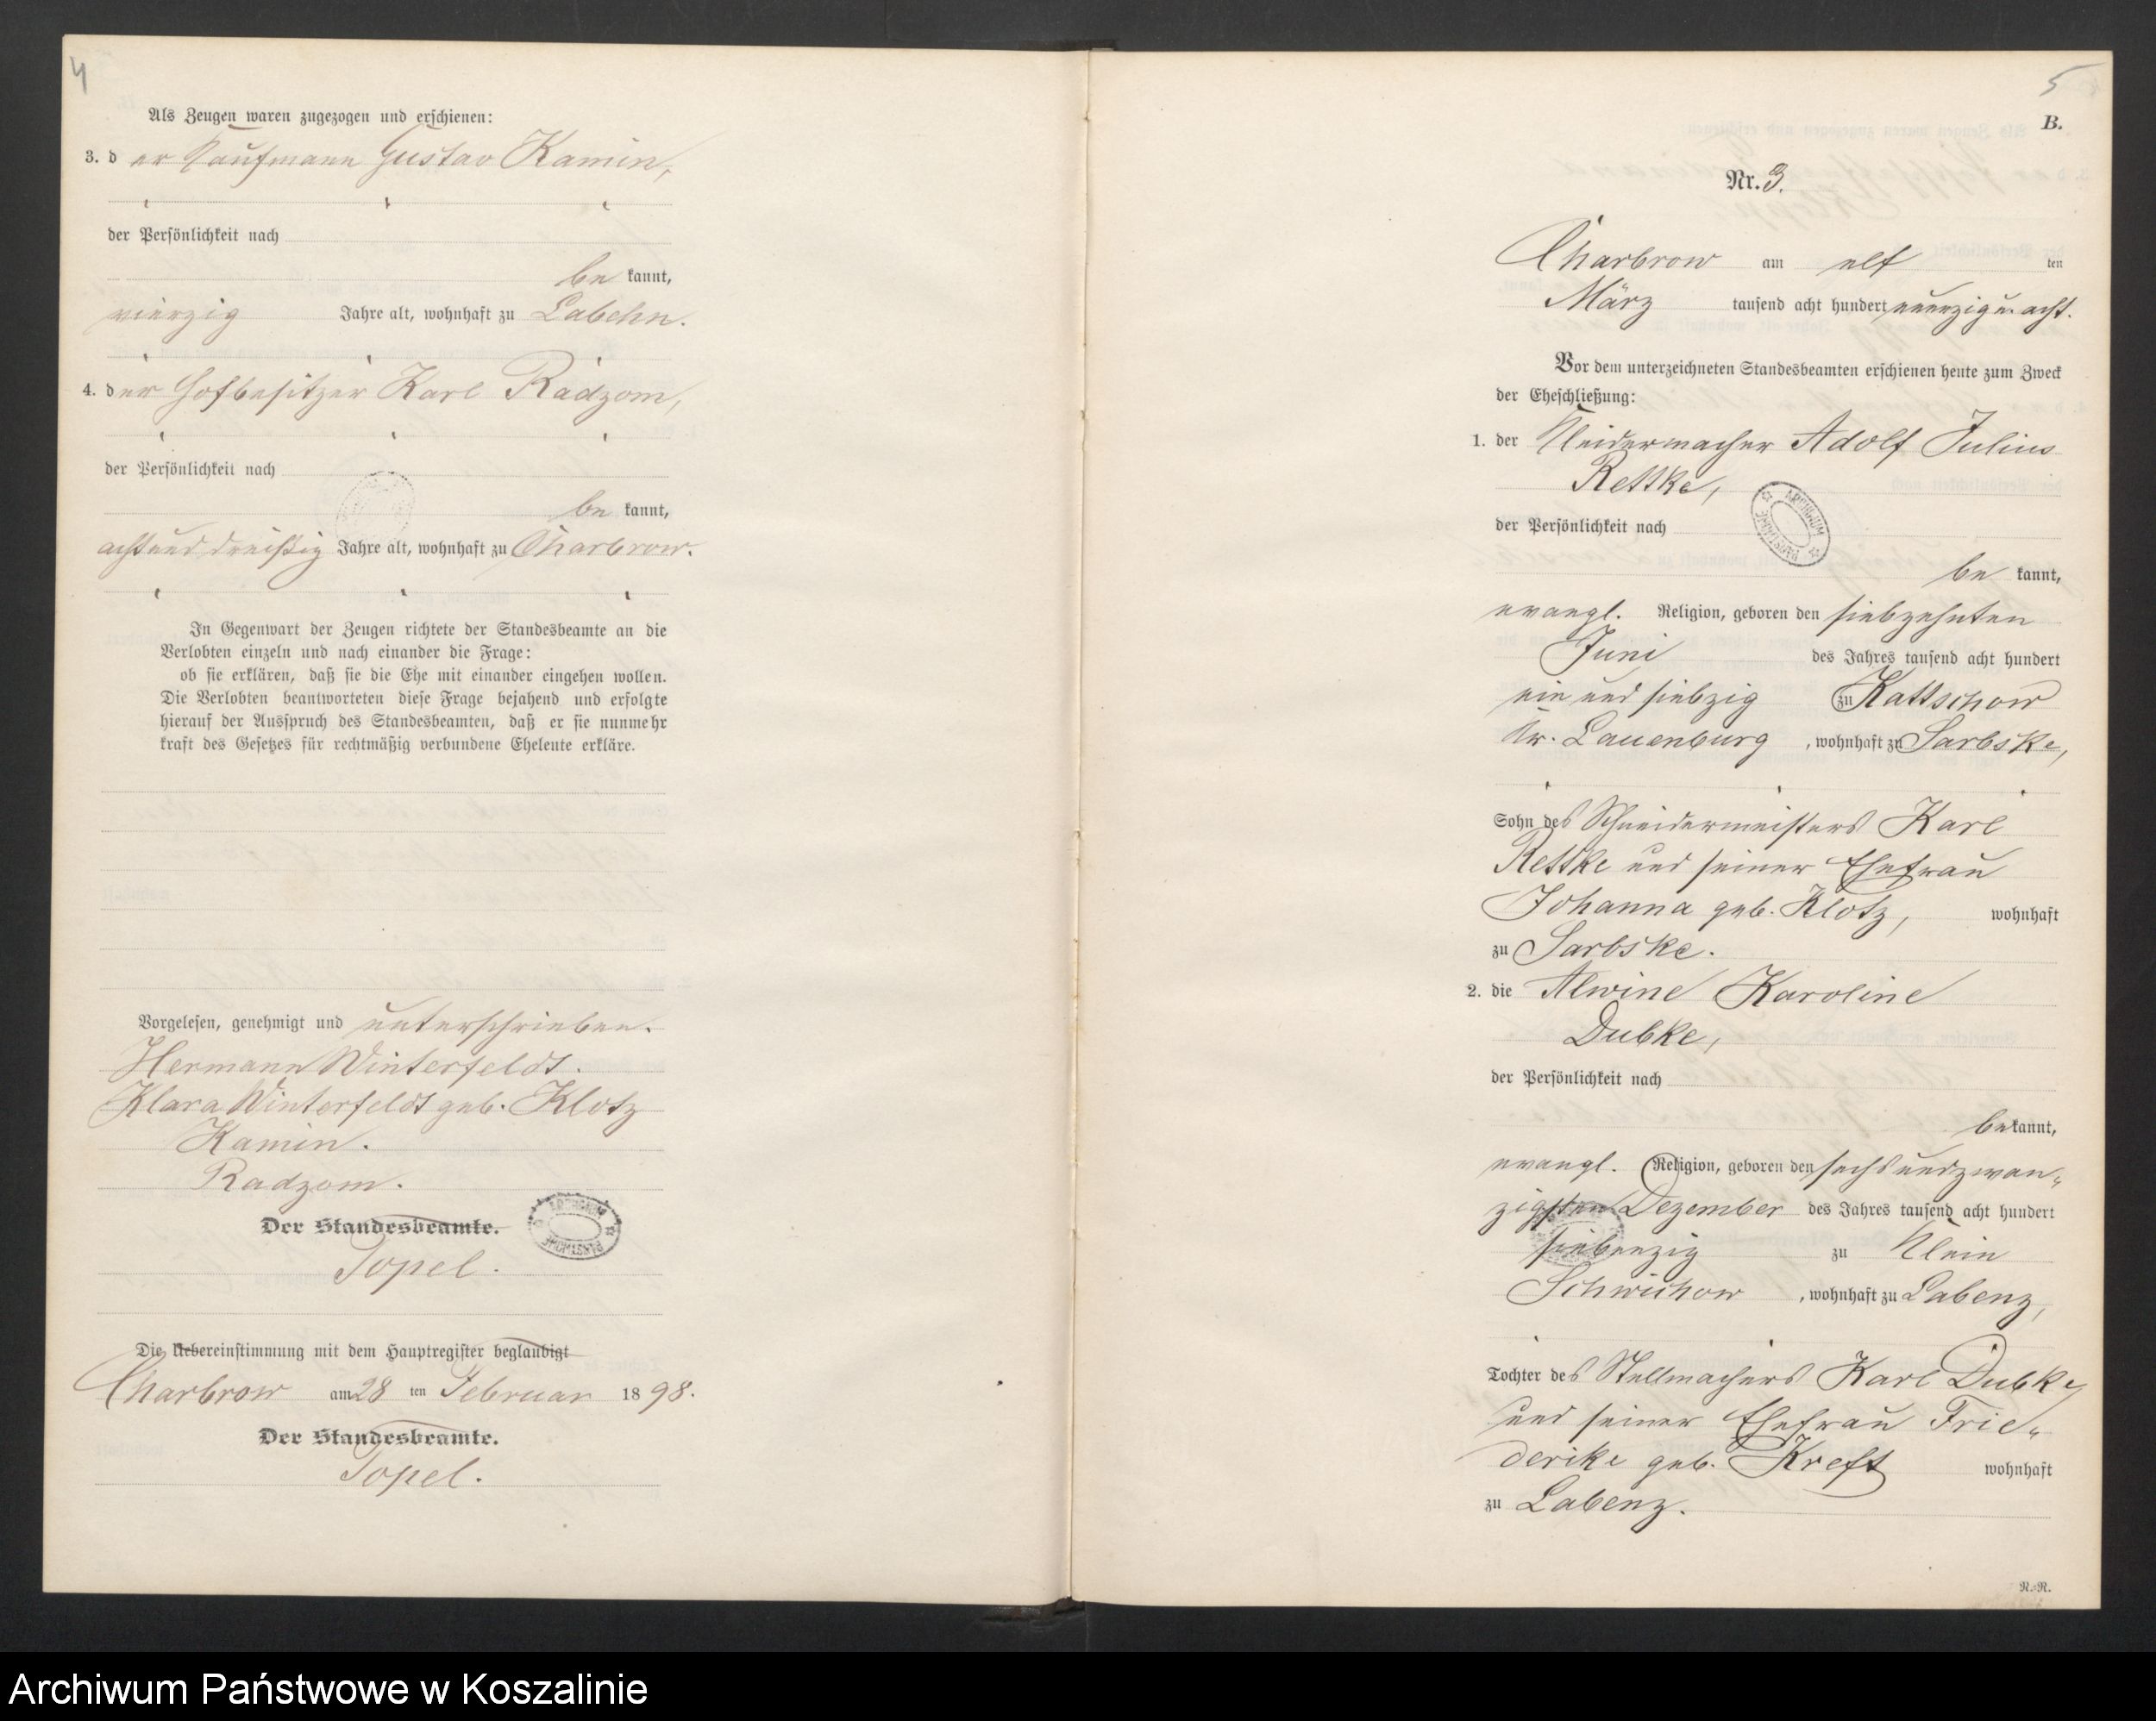 4
Als Zeugen waren zugezogen und erschienen:
3. der Kaufmann Gustav Kamin,
der Persönlichkeit nach
be kannt,
vierzig Jahre alt, wohnhaft zu Labehn.
4. der Hofbesitzer Karl Radzom,
der Persönlichkeit nach
be kannt,
achtunddreißig Jahre alt, wohnhaft zu Charbrow.
In Gegenwart der Zeugen richtete der Standesbeamte an die
Verlobten einzeln und nach einander die Frage:
ob sie erklären, daß sie die Ehe mit einander eingehen wollen.
Die Verlobten beantworteten diese Frage bejahend und erfolgte
hierauf der Ausspruch des Standesbeamten, daß er sie nunmehr
kraft des Gesetzes für rechtmäßig verbundene Eheleute erkläre.
Vorgelesen, genehmigt und unterschrieben.
Hermann Winterfeldt.
Klara Winterfeldt geb. Klotz
Kamin.
Radzom.
Der Standesbeamte.
Topel.
ARCHIWUM PAŃSTWOWE
Die Uebereinstimmung mit dem Hauptregister beglaubigt
Charbrow am 28 ten Februar 1898.
Der Standesbeamte.
Topel.
5
B.
Nr. 3.
Charbrow am elf ten
März tausend acht hundert neunzig u. acht.
Vor dem unterzeichneten Standesbeamten erschienen heute zum Zweck
der Eheschließung:
1. der Kleidermacher Adolf Julius
Rettke,
ARCHIWUM PAŃSTWOWE
der Persönlichkeit nach
be kannt,
evangl. Religion, geboren den siebzehnten
Juni des Jahres tausend acht hundert
ein und siebzig zu Kattschow
Kr. Lauenburg, wohnhaft zu Sarbske,
Sohn des Schneidermeisters Karl
Rettke und seiner Ehefrau
Johanna geb. Klotz, wohnhaft
zu Sarbske.
2. die Alwine Karoline
Dubke,
der Persönlichkeit nach
bekannt,
evangl. Religion, geboren den sechsundzwan-
zigsten Dezember des Jahres tausend acht hundert
siebenzig zu Klein
Schwichow, wohnhaft zu Labenz,
Tochter des Stellmachers Karl Dubke
und seiner Ehefrau Frie-
derike geb. Kreft wohnhaft
zu Labenz.
R.-R.
Archiwum Państwowe w Koszalinie